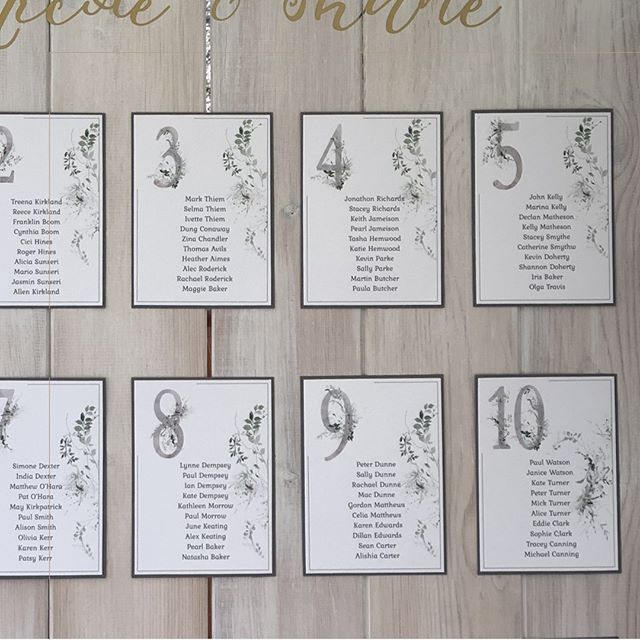 & Shane
2
Treena Kirkland
Reece Kirkland
Franklin Boom
Cynthia Boom
Cici Hines
Roger Hines
Alicia Sunseri
Mario Sunseri
Jasmin Sunseri
Allen Kirkland
3
Mark Thiem
Selma Thiem
Ivette Thiem
Dung Conaway
Zina Chandler
Thomas Avils
Heather Aimes
Alec Roderick
Rachael Roderick
Maggie Baker
4
Jonathon Richards
Stacey Richards
Keith Jameison
Pearl Jameison
Tasha Hemwood
Katie Hemwood
Kevin Parke
Sally Parke
Martin Butcher
Paula Butcher
5
John Kelly
Marina Kelly
Declan Matheson
Kelly Matheson
Stacey Smythe
Catherine Smythw
Kevin Doherty
Shannon Doherty
Iris Baker
Olga Travis
7
Simone Dexter
India Dexter
Matthew O'Hara
Pat O'Hara
May Kirkpatrick
Paul Smith
Alison Smith
Olivia Kerr
Karen Kerr
Patsy Kerr
8
Lynne Dempsey
Paul Dempsey
Ian Dempsey
Kate Dempsey
Kathleen Morrow
Paul Morrow
June Keating
Alex Keating
Pearl Baker
Natasha Baker
9
Peter Dunne
Sally Dunne
Rachael Dunne
Mac Dunne
Gordon Matthews
Celia Matthews
Karen Edwards
Dillan Edwards
Sean Carter
Alishia Carter
10
Paul Watson
Janice Watson
Kate Turner
Peter Turner
Mick Turner
Alice Turner
Eddie Clark
Sophie Clark
Tracey Canning
Michael Canning